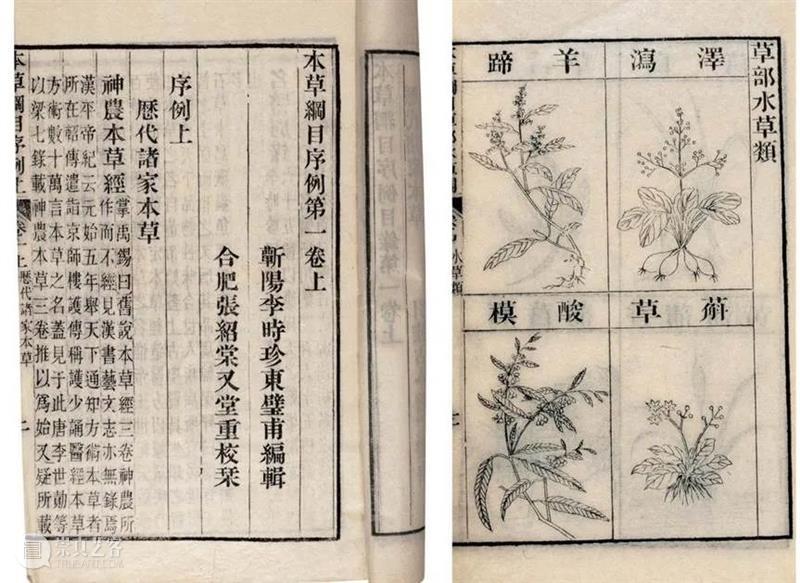 草部水草類
澤瀉
羊蹄
蔛草
酸模
本草綱目序例第一卷上
蘄陽李時珍東璧甫編輯
合肥張紹棠又堂重校栞
序例上
歷代諸家本草
神農本草經掌禹錫曰舊說本草經三卷神農所
作而不經見漢書藝文志亦無錄焉
漢平帝紀云元始五年舉天下通知方術本草者
所在軺傳遣詣京師樓護傳稱護少誦醫經本草
方術數十萬言本草之名蓋見于此唐李世勣等
以梁七錄載神農本草三卷推以爲始又疑所載
本草綱目序例上 卷一上 歷代諸家本草 一
崇真艺客